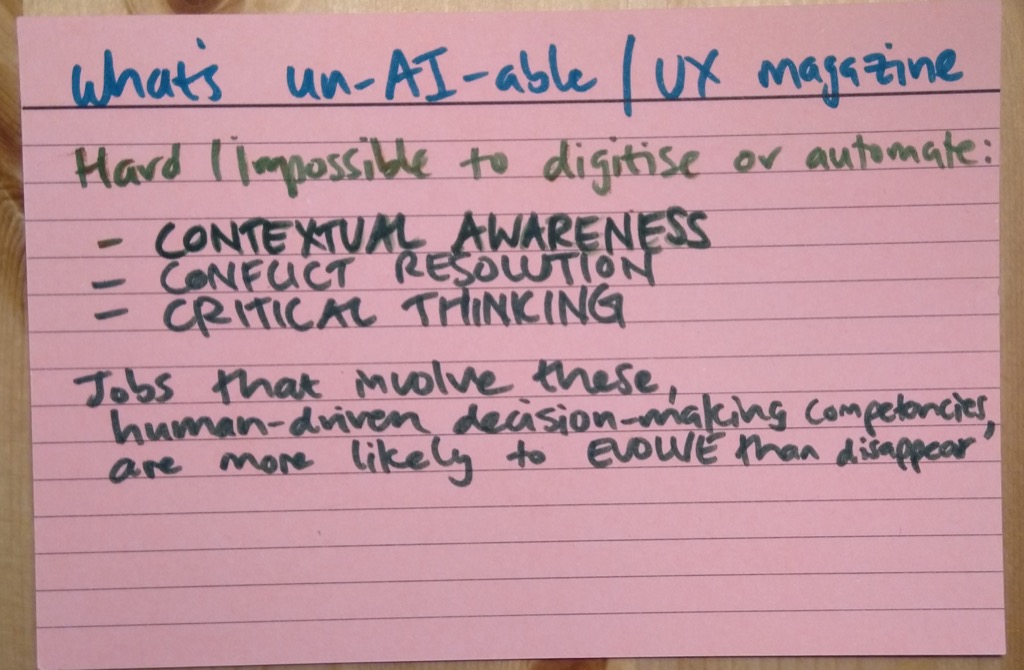 what's un-AI-able / UX magazine
Hard / impossible to digitise or automate:
- CONTEXTUAL AWARENESS
- CONFLICT RESOLUTION
- CRITICAL THINKING
Jobs that involve these,
human-driven decision-making competencies,
are more likely to EVOLVE than disappear